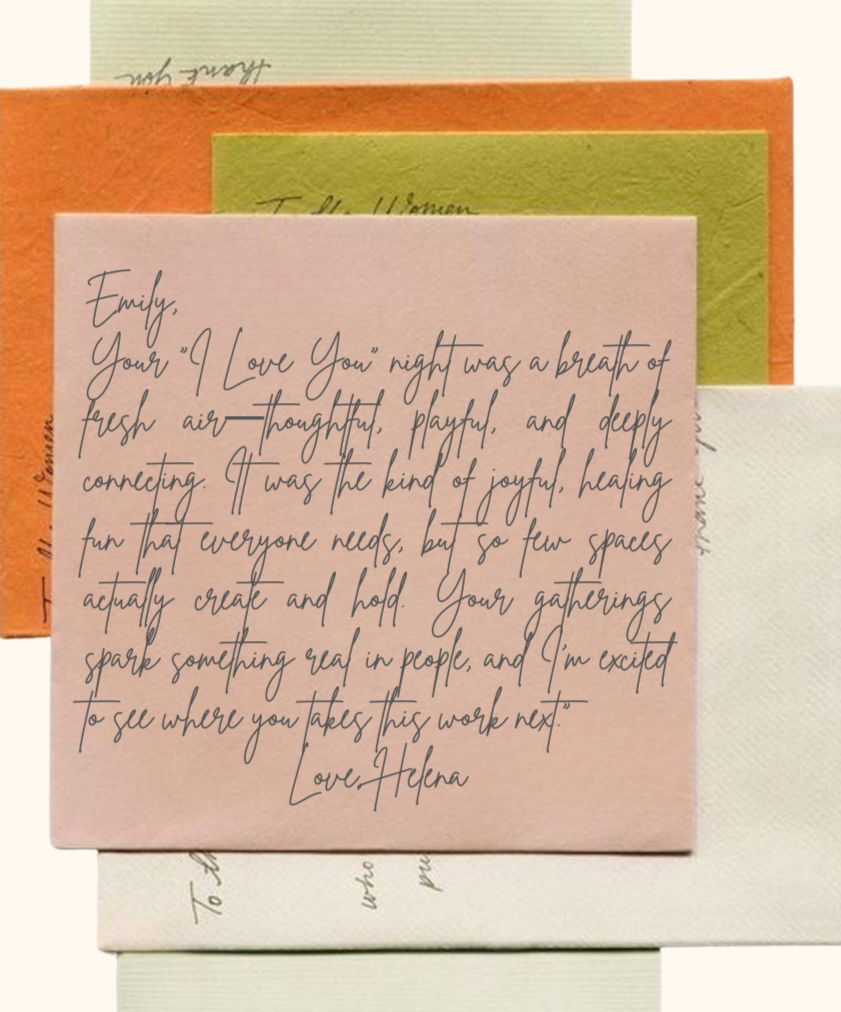 thank you
To the Women
Emily,
Your "I Love You" night was a breath of
fresh air—thoughtful, playful, and deeply
connecting. It was the kind of joyful, healing
fun that everyone needs, but so few spaces
actually create and hold. Your gatherings
spark something real in people, and I'm excited
to see where you takes this work next."
Love,Helena
To the Women
thank you
To th
who
pu